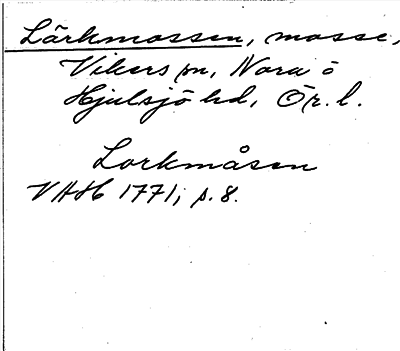 Lärkmossen, mosse,
Vikers sn, Nora o
Hjulsjö hd, Ör. l.
Lorkmåsen
VAH 1771, p. 8.